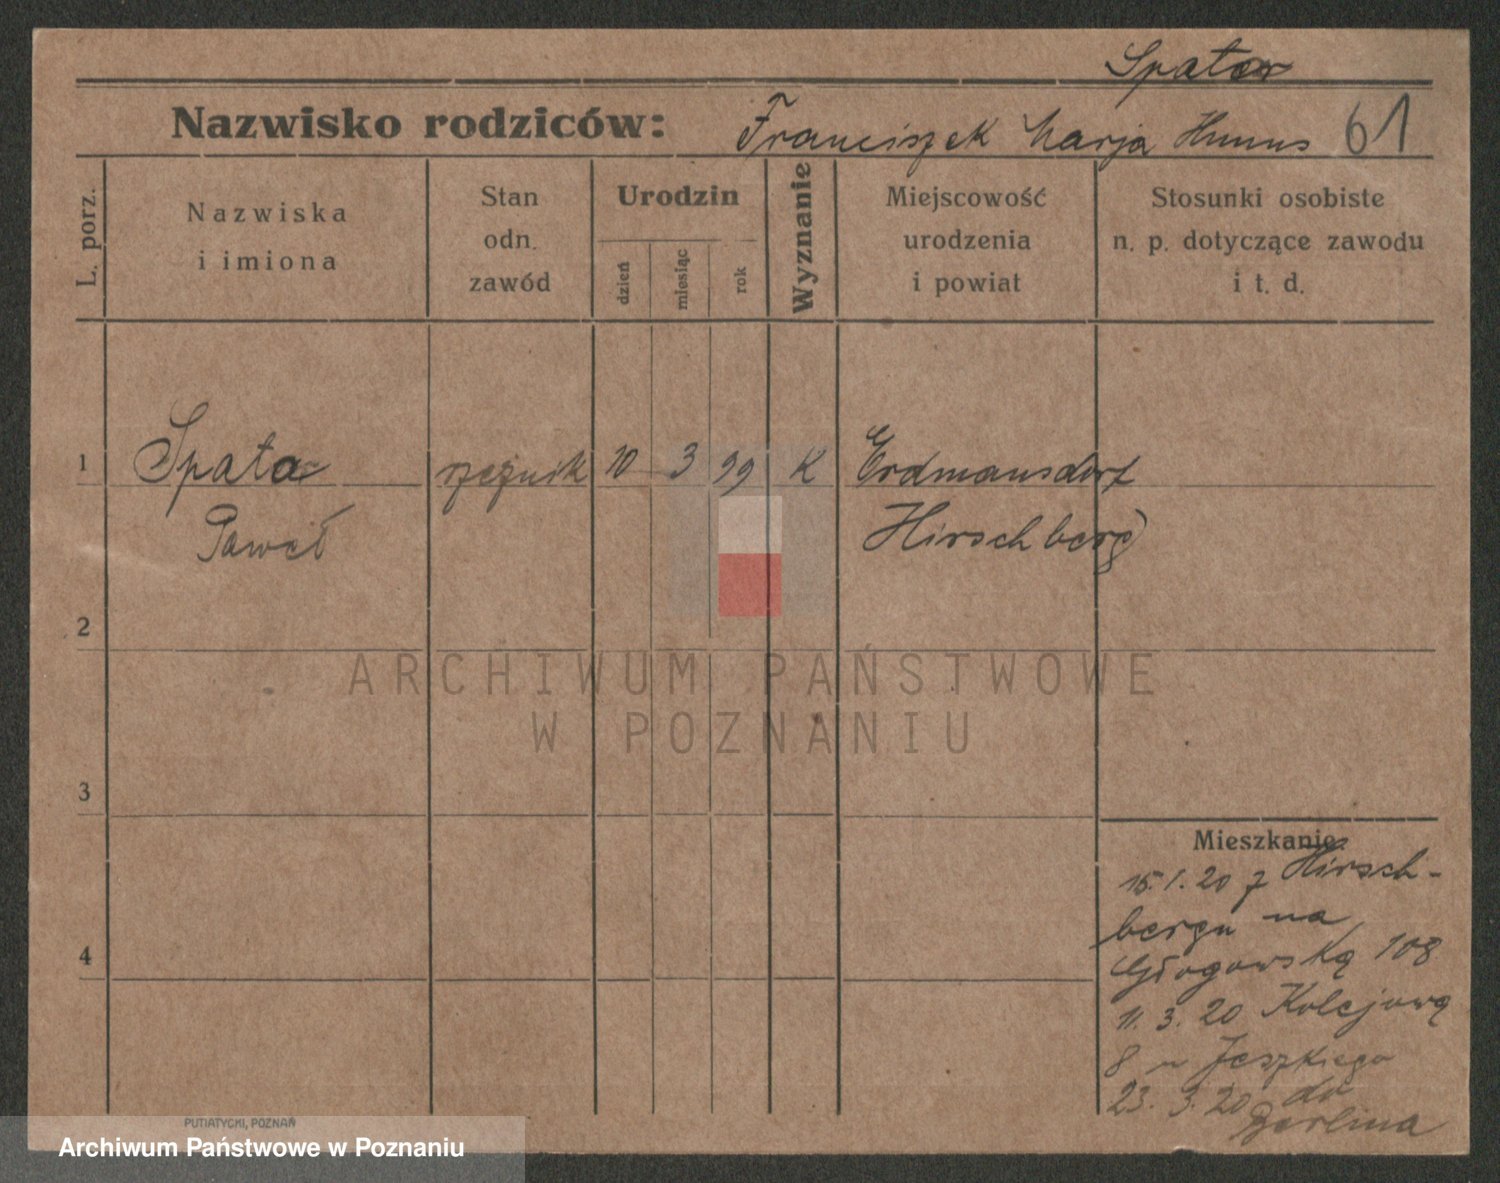 Spata
Nazwisko rodziców: Franciszek Marja 61
L. porz.
Nazwiska
i imiona
Stan
odn.
zawód
Urodzin
dzień
miesiąc
rok
Wyznanie
Miejscowość
urodzenia
i powiat
Stosunki osobiste
n. p. dotyczące zawodu
i t. d.
1 Spata rzeźnik 10 3 99 K Erdmansdorf
Paweł Hirschberg
2
ARCHIWUM PAŃSTWOWE
W POZNANIU
3
Mieszkanie:
15.1.20 z Hirsch-
bergu na
Głogowską 108
11. 3. 20 Kolejową
8 u Jeszkiego
23. 3. 20 do
Berlina
4
PUTIATYCKI, POZNAŃ
Archiwum Państwowe w Poznaniu